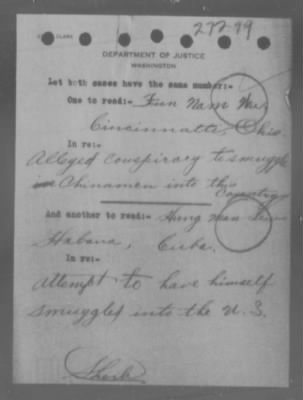 272-79
CLARK
DEPARTMENT OF JUSTICE
WASHINGTON
Let both cases have the same number:-
One to read:- Fun Nam
Cincinnatti, Ohio.
In re:-
Alleged conspiracy to smuggle
Chinamen into this
Country
And another to read:- Hung
Habana, Cuba.
In re:-
Attempt to have himself
smuggled into the U. S.